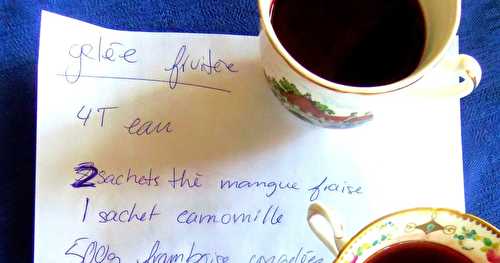 gelée fruitée
4T eau
2 sachets thé mangue fraise
1 sachet camomille
500g framboise congelées